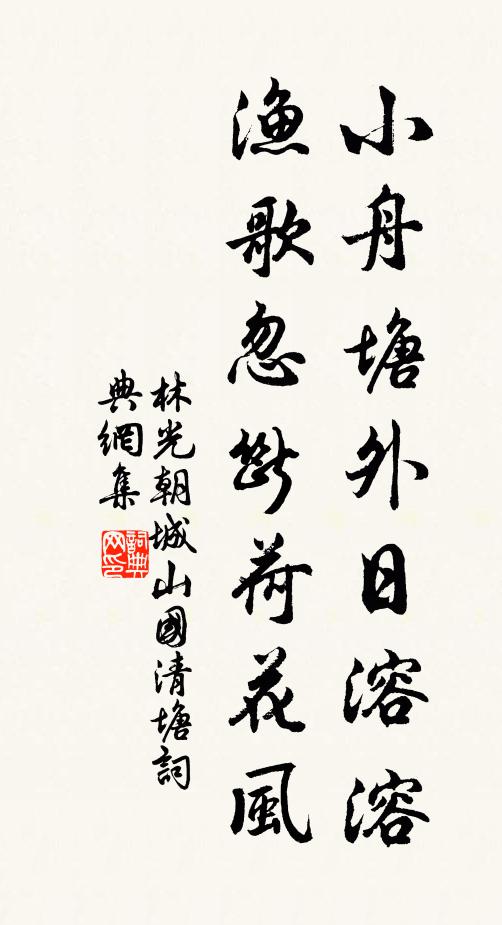 小舟塘外日溶溶
漁歌忽斷荷花風
林光朝城山國清塘詞
典網集
詞典
网印